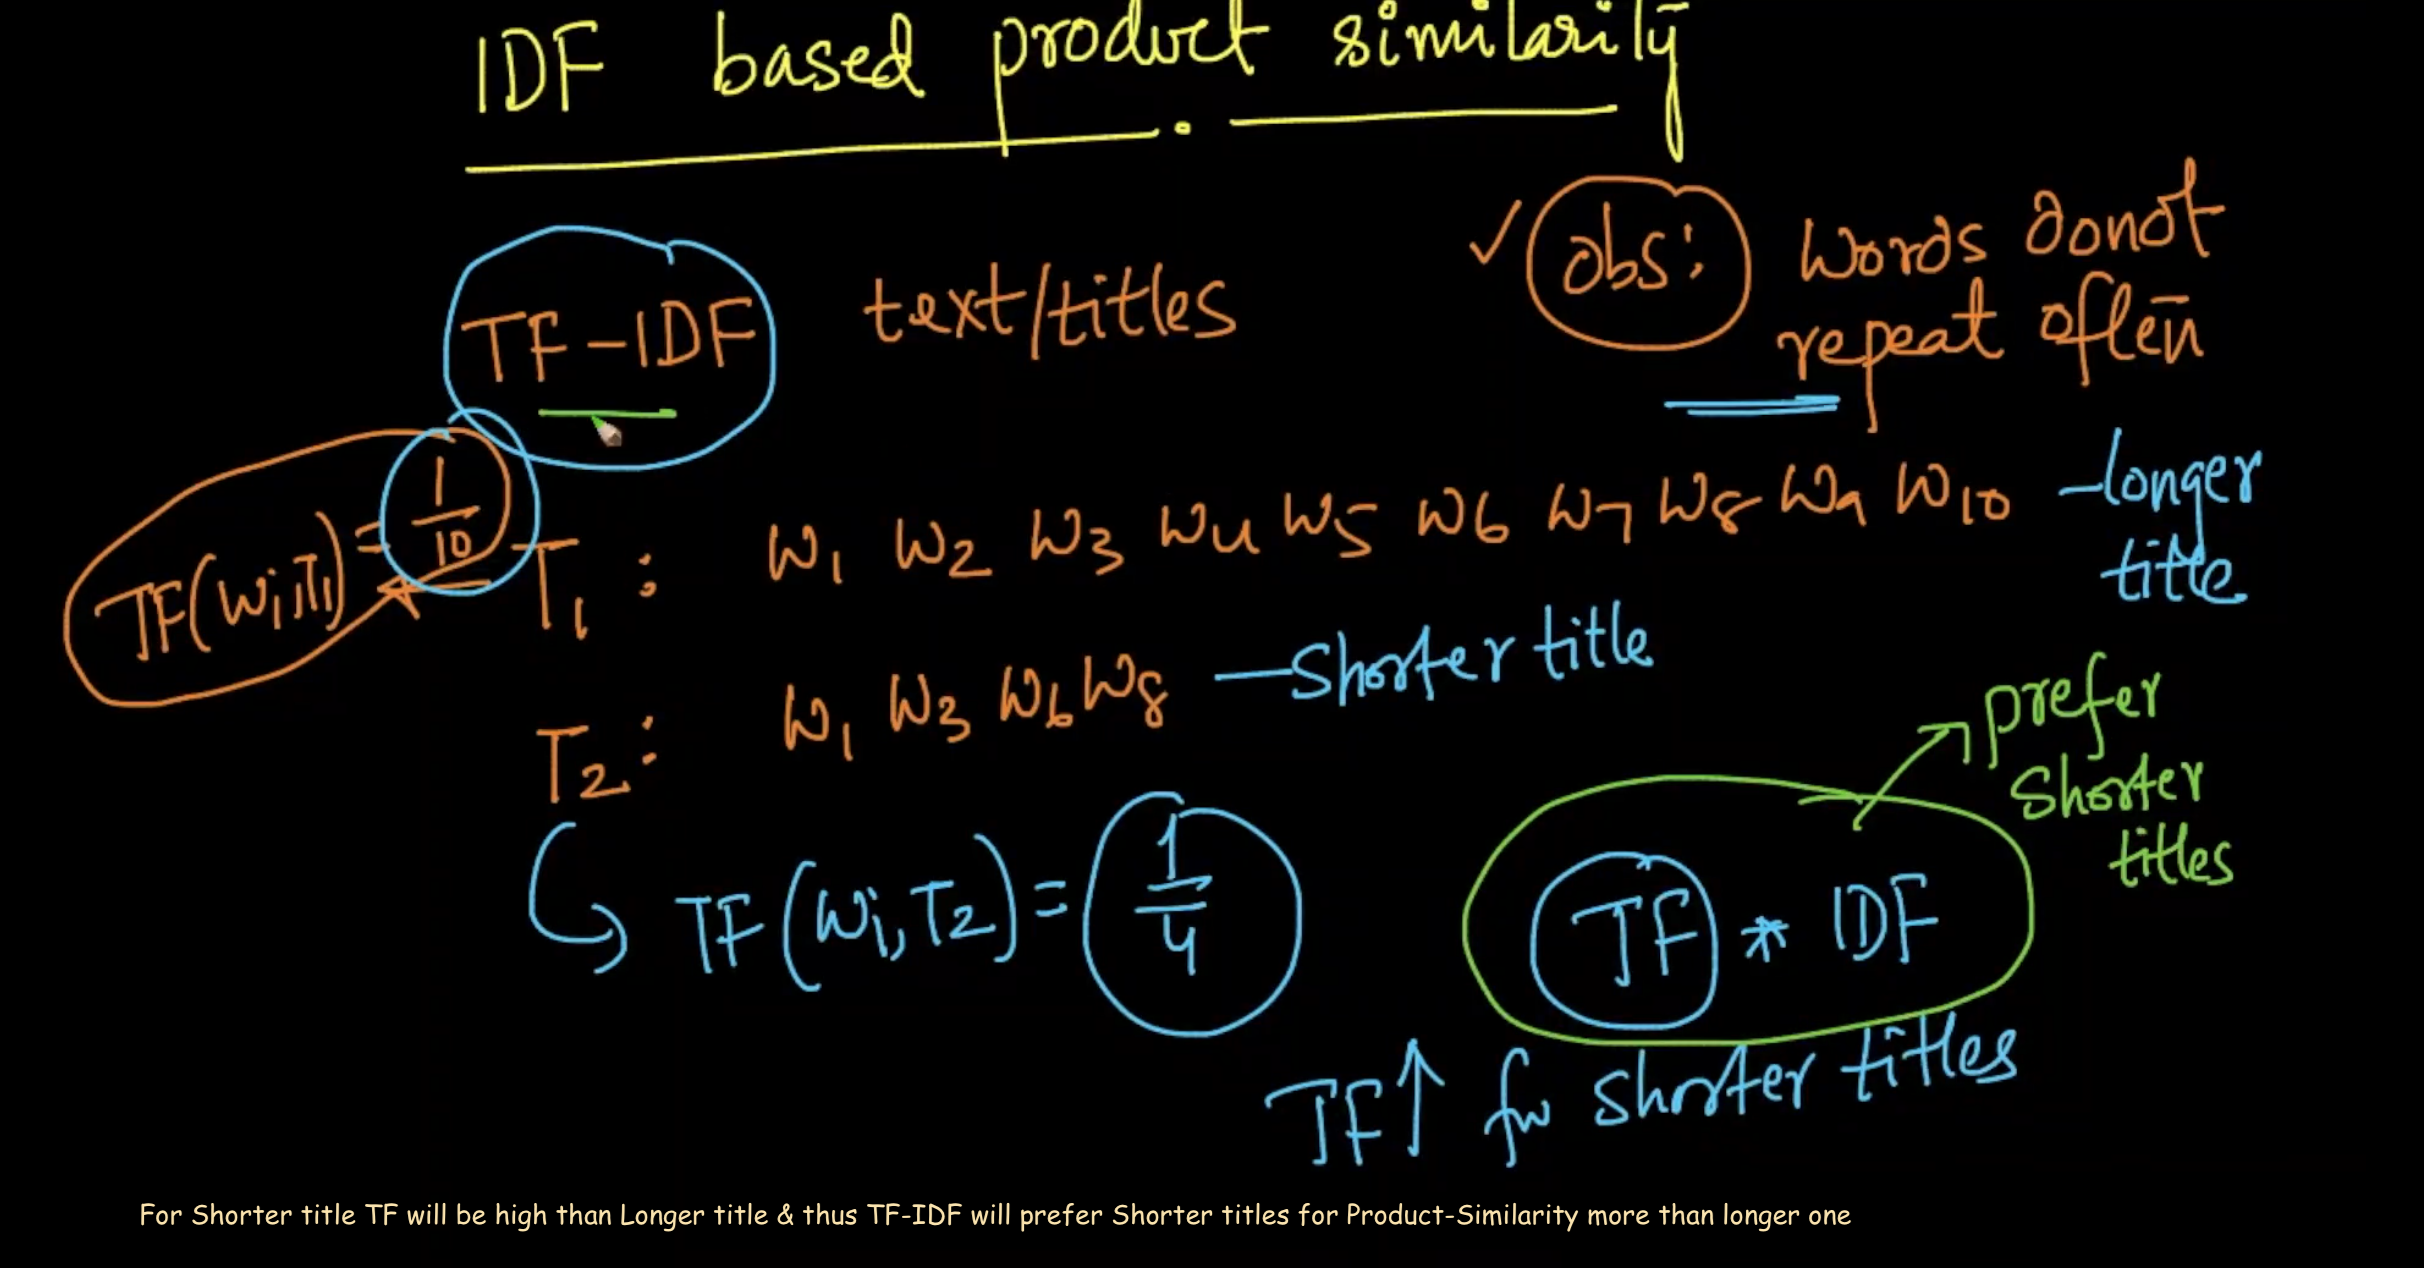 IDF based product similarity
TF-IDF text/titles
✓ obs: Words donot
repeat often
TF(Wi,T1) = 1/10
T1 : W1 W2 W3 W4 W5 W6 W7 W8 W9 W10 - longer
title
T2 : W1 W3 W6 W8 - Shorter title
prefer
shorter
titles
TF(Wi, T2) = 1/4
TF * IDF
TF↑ for shorter titles
For Shorter title TF will be high than Longer title & thus TF-IDF will prefer Shorter titles for Product-Similarity more than longer one